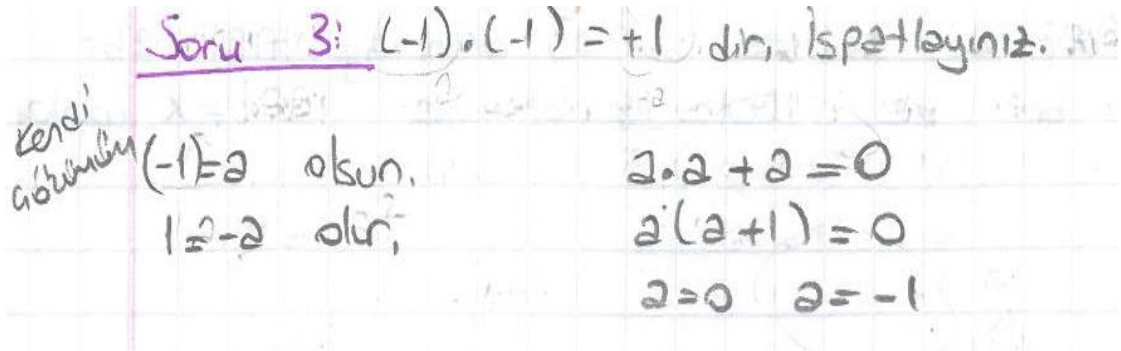 Soru 3: (-1).(-1) = +1 dir, İspatlayınız.
Kendi
çözümüm
(-1)=a olsun.
1=-a olur,
a.a + a = 0
a(a+1) = 0
a=0 a=-1